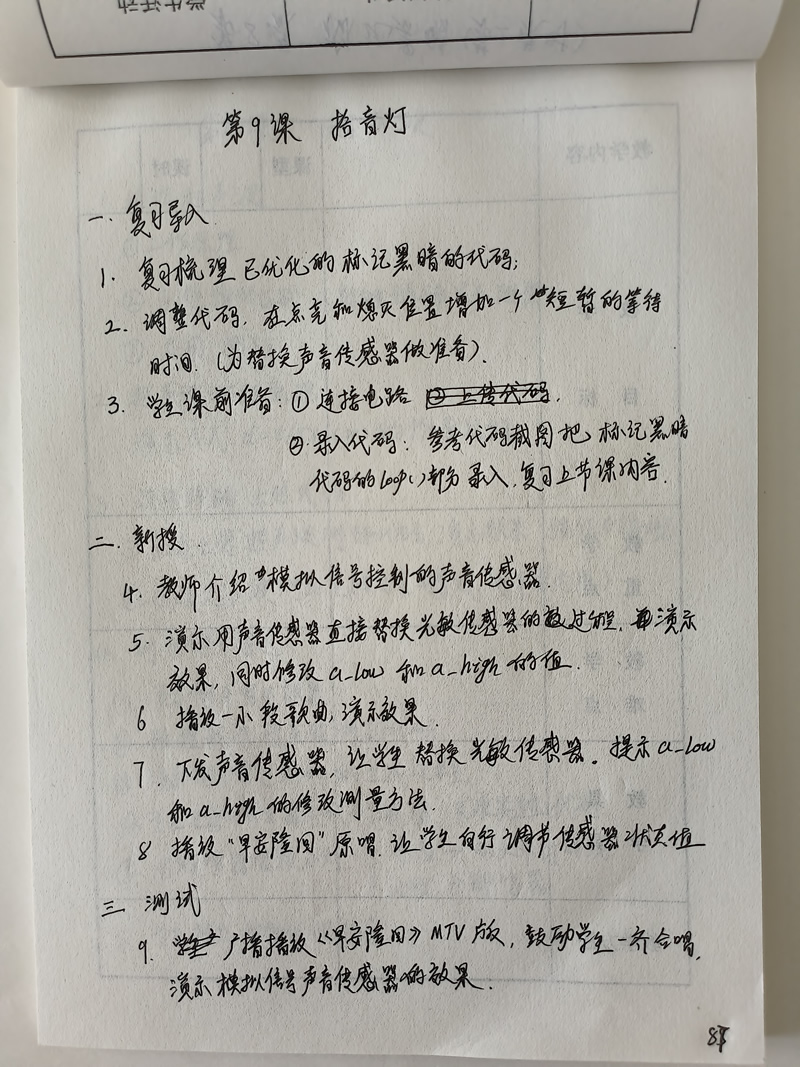 学生活动
第9课 拾音灯
一. 复习导入
1. 复习梳理已优化的标记黑暗的代码;
2. 调整代码, 在点亮和熄灭位置增加一个短暂的等待
时间. (为替换声音传感器做准备).
3. 学生课前准备: ① 连接电路 ②上传代码.
② 录入代码: 参考代码截图把标记黑暗
代码的loop()部分录入, 复习上节课内容.
二. 新授.
4. 教师介绍模拟信号控制的声音传感器.
5. 演示用声音传感器直接替换光敏传感器的过程. 演示
效果, 同时修改a_low 和a_high 的值.
6 播放一小段歌曲, 演示效果.
7. 下发声音传感器, 让学生替换光敏传感器. 提示a_low
和a_high的修改测量方法.
8 播放"早安隆回"原唱. 让学生自行调节传感器状态值
三. 测试
9. 学生 广播播放《早安隆回》MTV版, 鼓动学生一齐合唱,
演示模拟信号声音传感器的效果.
教学内容 课型 课时